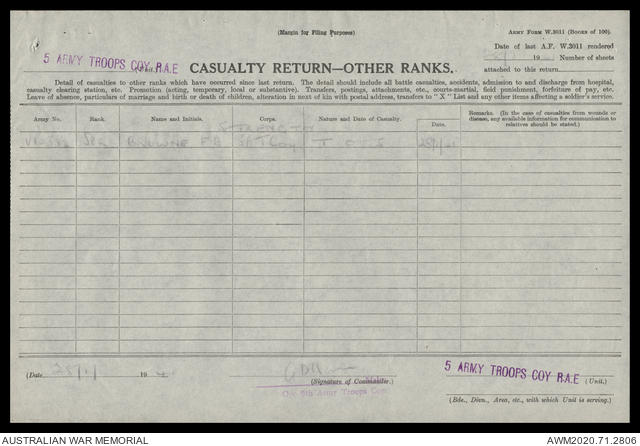 (Margin for Filing Purposes)
ARMY FORM W.3011 (BOOKS OF 100).
5 ARMY TROOPS COY R.A.E
CASUALTY RETURN—OTHER RANKS.
Date of last A.F. W.3011 rendered
19 Number of sheets
attached to this return
Detail of casualties to other ranks which have occurred since last return. The detail should include all battle casualties, accidents, admission to and discharge from hospital,
casualty clearing station, etc. Promotion (acting, temporary, local or substantive). Transfers, postings, attachments, etc., courts-martial, field punishment, forfeiture of pay, etc.
Leave of absence, particulars of marriage and birth or death of children, alteration in next of kin with postal address, transfers to "X" List and any other items affecting a soldier's service.
Army No. Rank. Name and Initials. Corps. Nature and Date of Casualty. Date. Remarks. (In the case of casualties from wounds or
disease, any available information for communication to
relatives should be stated.)
STRENGTH
SPR BROWNE
(Date 25/1/ 19
(Signature of Commander)
OC 5th Army Troops Coy
5 ARMY TROOPS COY R.A.E (Unit.)
(Bde., Divn., Area, etc., with which Unit is serving.)
AUSTRALIAN WAR MEMORIAL
AWM2020.71.2806